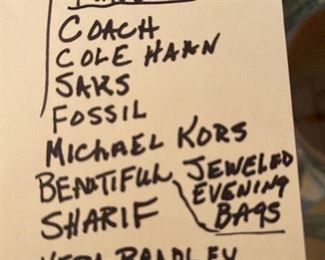 COACH
COLE HAAN
SAKS
FOSSIL
MICHAEL KORS
BEAUTIFUL JEWELED
EVENING
SHARIF BAGS
VERA BRADLEY